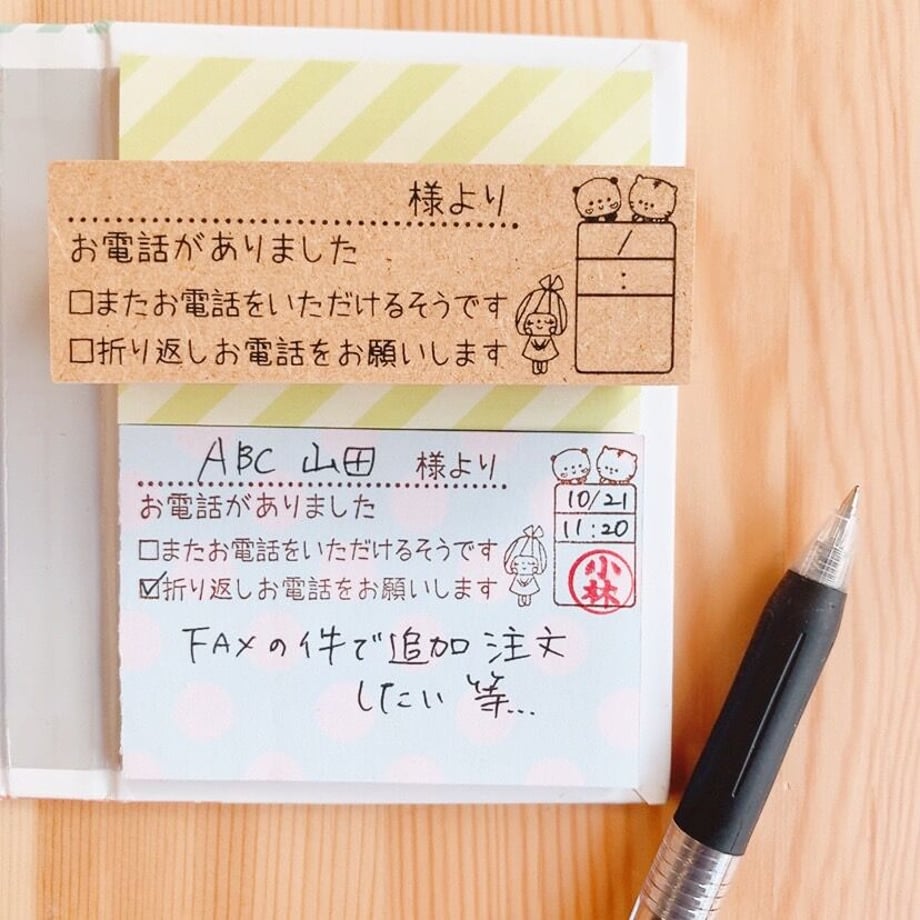 様より
お電話がありました
□またお電話をいただけるそうです
□折り返しお電話をお願いします
/
:
ABC 山田 様より
お電話がありました
□またお電話をいただけるそうです
☑折り返しお電話をお願いします
10/21
11:20
小林
FAXの件で追加注文
したい 等...